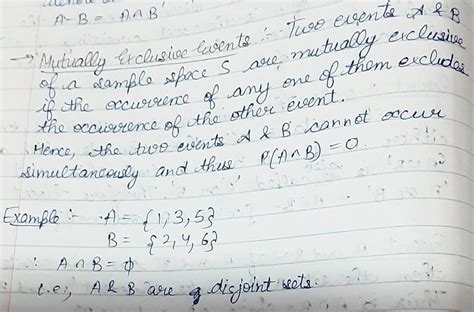 A-B = A∩B'
→ Mutually Exclusive Events :- Two events A & B
of a sample space S are mutually exclusive
if the occurrence of any one of them excludes
the occurrence of the other event.
Hence, the two events A & B cannot occur
simultaneously and thus P(A∩B) = 0
Example :- A = {1,3,5}
B = {2,4,6}
∴ A∩B = ϕ
i.e., A & B are disjoint sets.